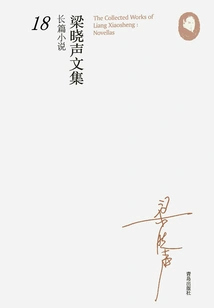 18
梁晓声文集
长篇小说
The Collected Works of
Liang Xiaosheng :
Novellas
梁晓声
青岛出版社